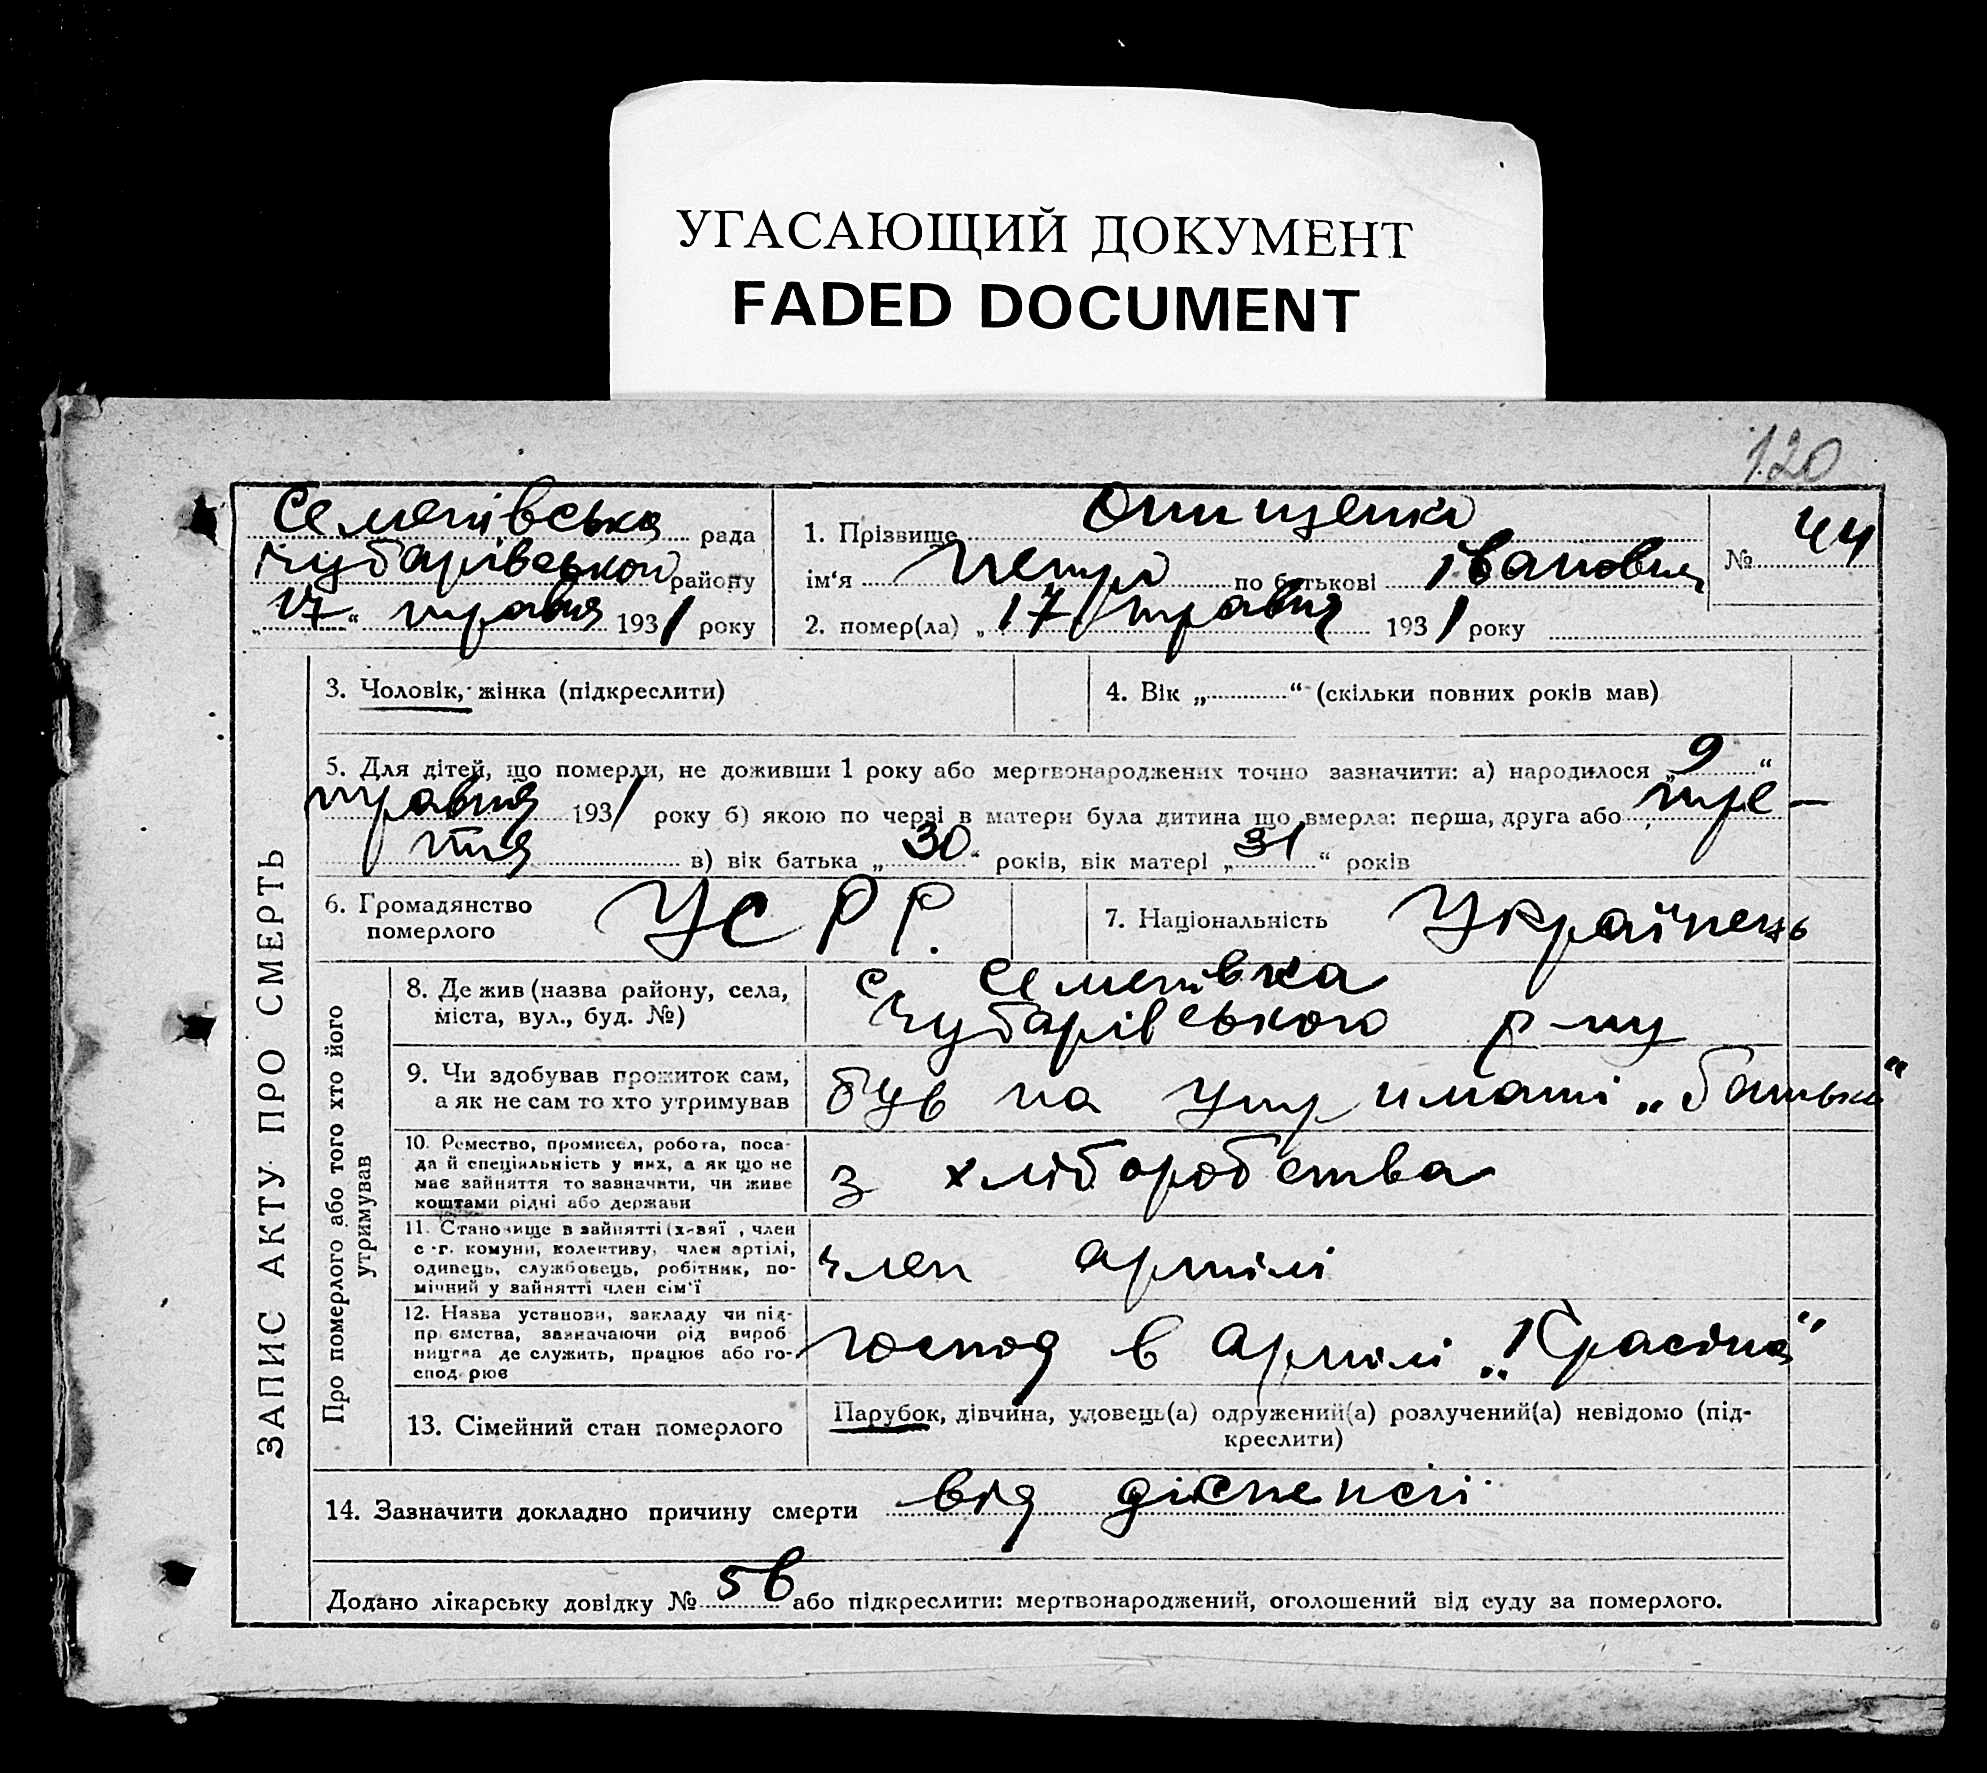 УГАСАЮЩИЙ ДОКУМЕНТ
FADED DOCUMENT
120
Семенівська рада
Чубарівської району
„17“ травня 1931 року
1. Прізвище Онищенко
ім‘я Петро по батькові Іванович
№ 44
2. помер(ла) „17 травня 1931 року
ЗАПИС АКТУ ПРО СМЕРТЬ
3. Чоловік, жінка (підкреслити)
4. Вік „ “ (скільки повних років мав)
5. Для дітей, що померли, не доживши 1 року або мертвонароджених точно зазначити: а) народилося „9“
травня 1931 року б) якою по черзі в матери була дитина що вмерла: перша, друга або тре-
тя в) вік батька „30“ років, вік матері „31“ років
6. Громадянство
померлого
УСРР.
7. Національність Українець
Про померлого або того хто його
утримував
8. Де жив (назва району, села,
міста, вул., буд. №)
с Семенівка
Чубарівського р-ну
9. Чи здобував прожиток сам,
а як не сам то хто утримував
був на утриманні „батька“
10. Ремество, промисел, робота, поса-
да й спеціяльність у них, а як що не
має зайняття то зазначити, чи живе
коштами рідні або держави
з хліборобства
11. Становище в зайнятті (х-вяї , член
с-г. комуни, колективу, член артілі,
одинець, службовець, робітник, по-
мічний у зайнятті член сім‘ї
член артілі
12. Назва установи, закладу чи під-
пр ємства, зазначаючи рід вироб
ництва де служить, працює або го-
спод рює
господ в артілі „Красіна“
13. Сімейний стан померлого
Парубок, дівчина, удовець(а) одружений(а) розлучений(а) невідомо (під-
креслити)
14. Зазначити докладно причину смерти від діспенсії
Додано лікарську довідку № 56 або підкреслити: мертвонароджений, оголошений від суду за померлого.